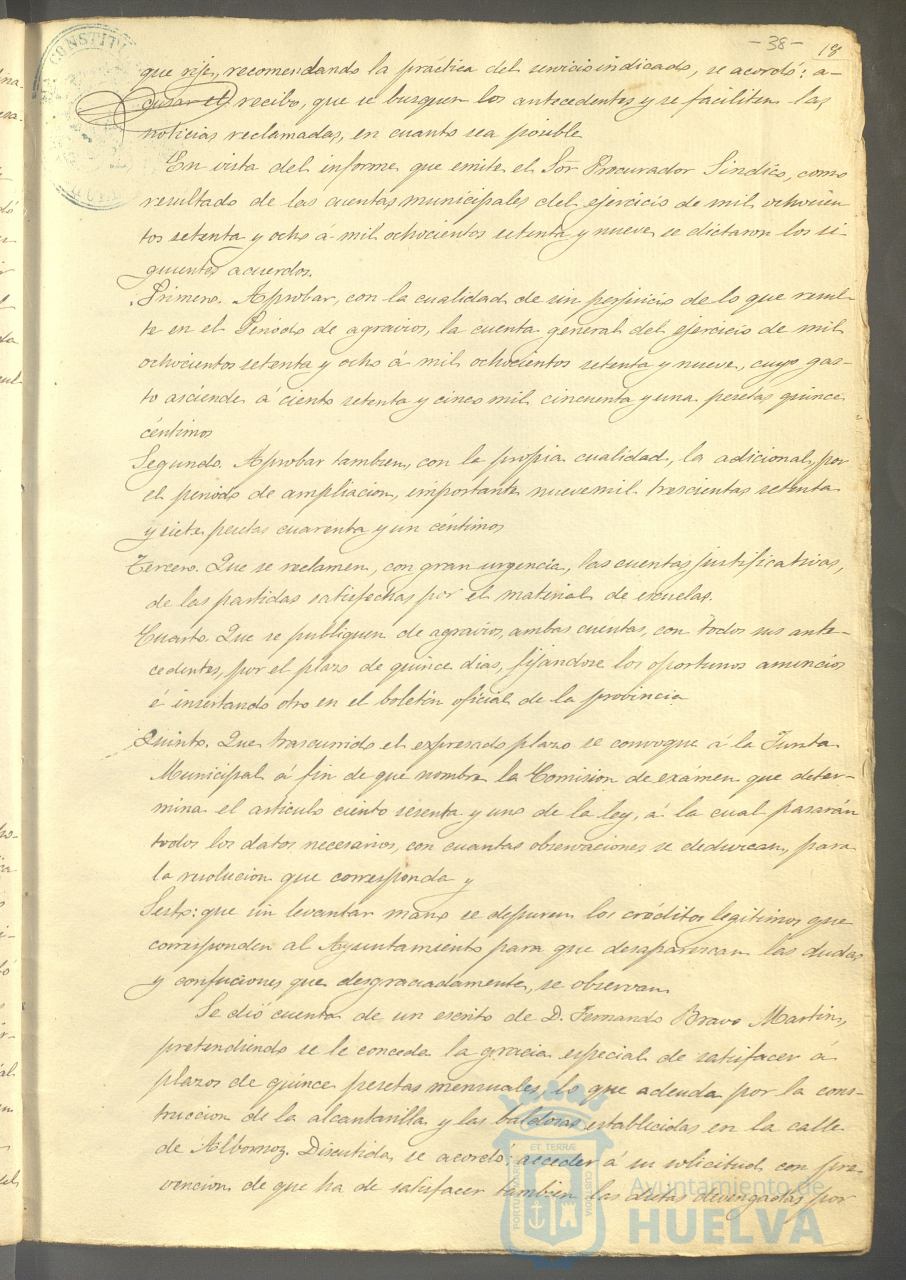 -38-
18
que rije, recomendando la practica del servicio indicado, se acordó: a-
cusar el recibo, que se busquen los antecedentes y se faciliten las
noticias reclamadas, en cuanto sea posible
En vista del informe que emite el Sor Procurador Sindico, como
resultado de las cuentas municipales del ejercicio de mil ochocien
tos setenta y ocho á mil ochocientos setenta y nueve se dictaron los si-
guientes acuerdos.
Primero. Aprobar, con la cualidad de sin perjuicio de lo que resul-
te en el Periodo de agravios, la cuenta general del ejercicio de mil
ochocientos setenta y ocho á mil ochocientos setenta y nueve, cuyo gas-
to asciende á ciento setenta y cinco mil cincuenta y una pesetas quince
céntimos
Segundo. Aprobar tambien, con la propia cualidad, la adicional, por
el periodo de ampliacion, importante nueve mil trescientas setenta
y siete pesetas cuarenta y un céntimos
Tercero. Que se reclamen, con gran urgencia, las cuentas justificativas,
de las partidas satisfechas por el material de escuelas.
Cuarto. Que se publiquen de agravios, ambas cuentas, con todos sus ante-
cedentes, por el plazo de quince dias, fijandose los oportunos anuncios
é insertando otro en el boletin oficial de la provincia
Quinto. Que trascurrido el expresado plazo se convoque á la Junta
Municipal á fin de que nombre la Comision de exámen que deter-
mina el articulo ciento sesenta y uno de la ley, á la cual pasarán
todos los datos necesarios, con cuantas observaciones se deduzcan, para
la resolucion que corresponda y
Sesto: que sin levantar mano se depuren los créditos legitimos que
corresponden al Ayuntamiento para que desaparezcan las dudas
y confuciones que desgraciadamente, se observan
Se dió cuenta de un escrito de D. Fernando Bravo Martin,
pretendiendo se le conceda la gracia especial de satisfacer á
plazos de quince pesetas mensuales, lo que adeuda por la cons-
truccion de la alcantarilla y las baldosas establecidas en la calle
de Albornoz. Discutida, se acordó: acceder á su solicitud con pre
vencion de que ha de satisfacer tambien las dietas devengadas por
Ayuntamiento de
HUELVA